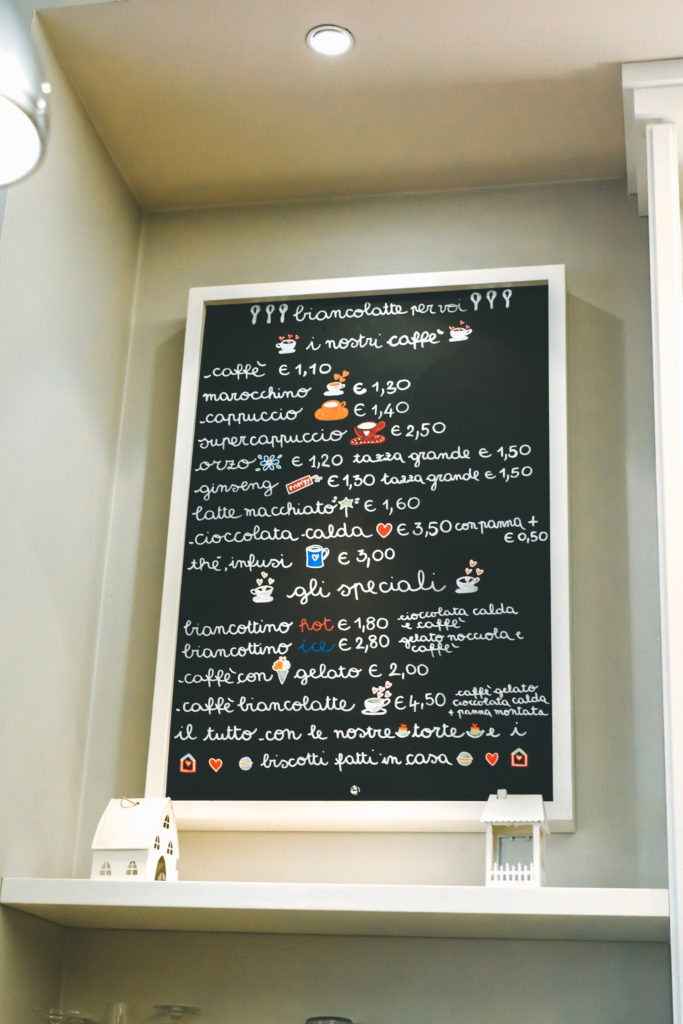 biancolatte per voi
i nostri caffè
caffè € 1,10
marocchino € 1,30
cappuccio € 1,40
supercappuccio € 2,50
orzo € 1,20 tazza grande € 1,50
ginseng energy € 1,30 tazza grande € 1,50
latte macchiato € 1,60
cioccolata calda € 3,50 con panna +
€ 0,50
thé, infusi € 3,00
gli speciali
biancottino hot € 1,80 cioccolata calda
e caffè
biancottino ice € 2,80 gelato nocciola e
caffè
caffè con gelato € 2,00
caffè biancolatte € 4,50 caffè gelato
cioccolata calda
+ panna montata
il tutto con le nostre torte e i
biscotti fatti in casa